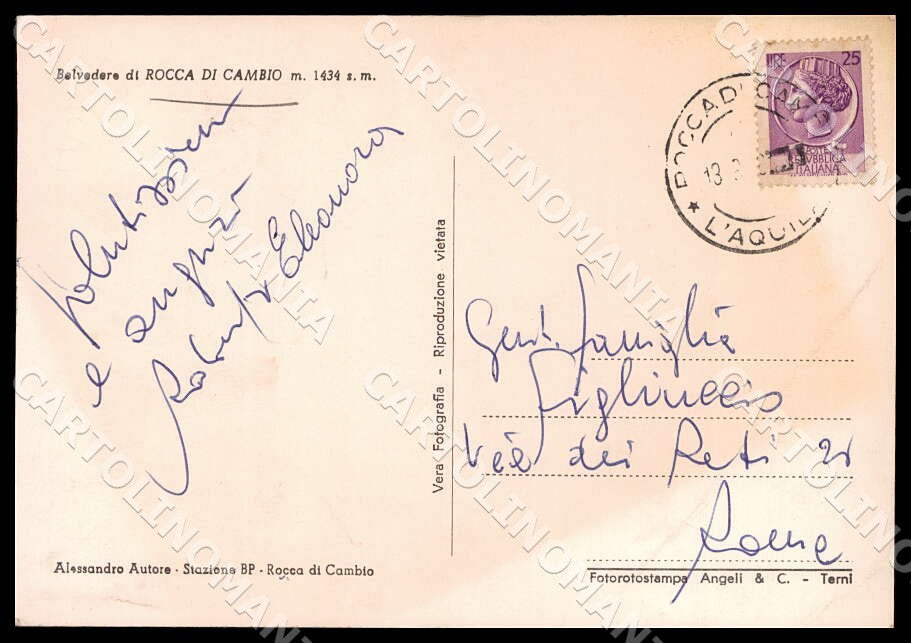 Belvedere di ROCCA DI CAMBIO m. 1434 s. m.
Salutissimi
e auguri
Eleonora
LIRE 25
REPUBBLICA
ITALIANA
ROCCA DI CAMB
13
L'AQUILA
Vera Fotografia - Riproduzione vietata
Gent. famiglia
Via dei Reti 21
Roma
Alessandro Autore - Stazione BP - Rocca di Cambio
Fotorotostampa Angeli & C. - Terni
CARTOLINOMANIA